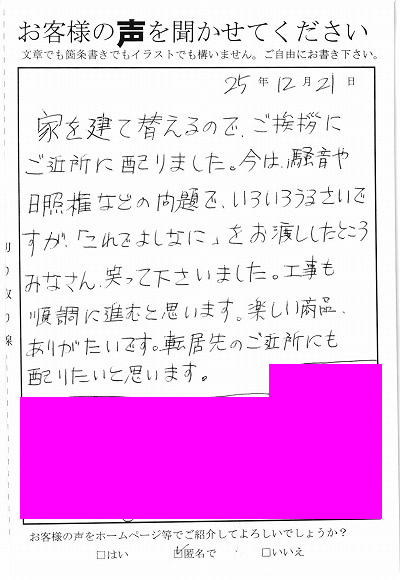 お客様の声を聞かせてください
文章でも箇条書きでもイラストでも構いません。ご自由にお書き下さい。
25年12月21日
家を建て替えるので、ご挨拶に
ご近所に配りました。今は、騒音や
日照権などの問題で、いろいろうるさいで
すが、「これでよしなに」をお渡ししたところ
みなさん、笑って下さいました。工事も
順調に進むと思います。楽しい商品、
ありがたいです。転居先のご近所にも
配りたいと思います。
切り取り線
お客様の声をホームページ等でご紹介してよろしいでしょうか？
□はい □匿名で □いいえ